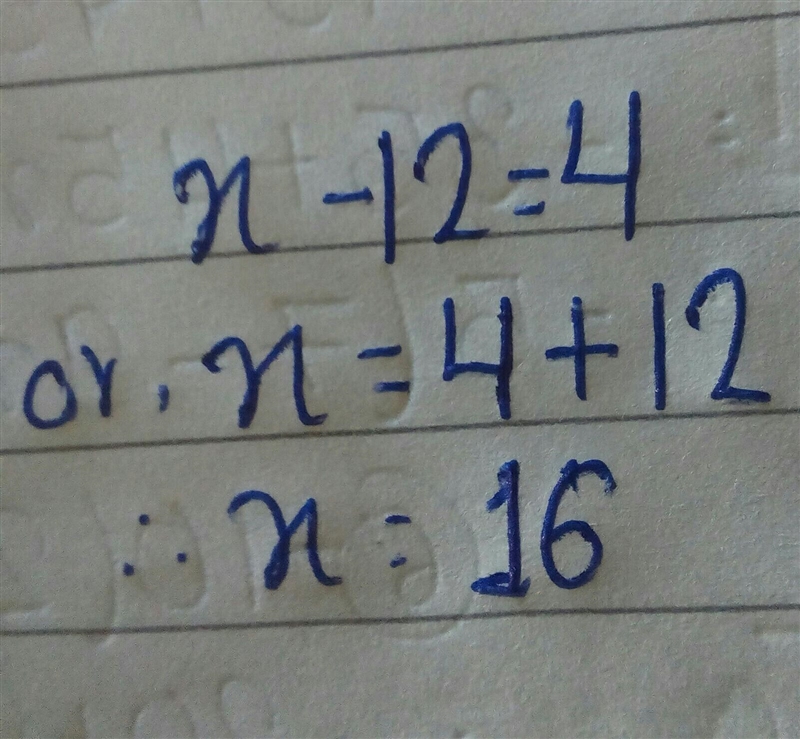 x - 12 = 4
or, x = 4 + 12
∴ x = 16